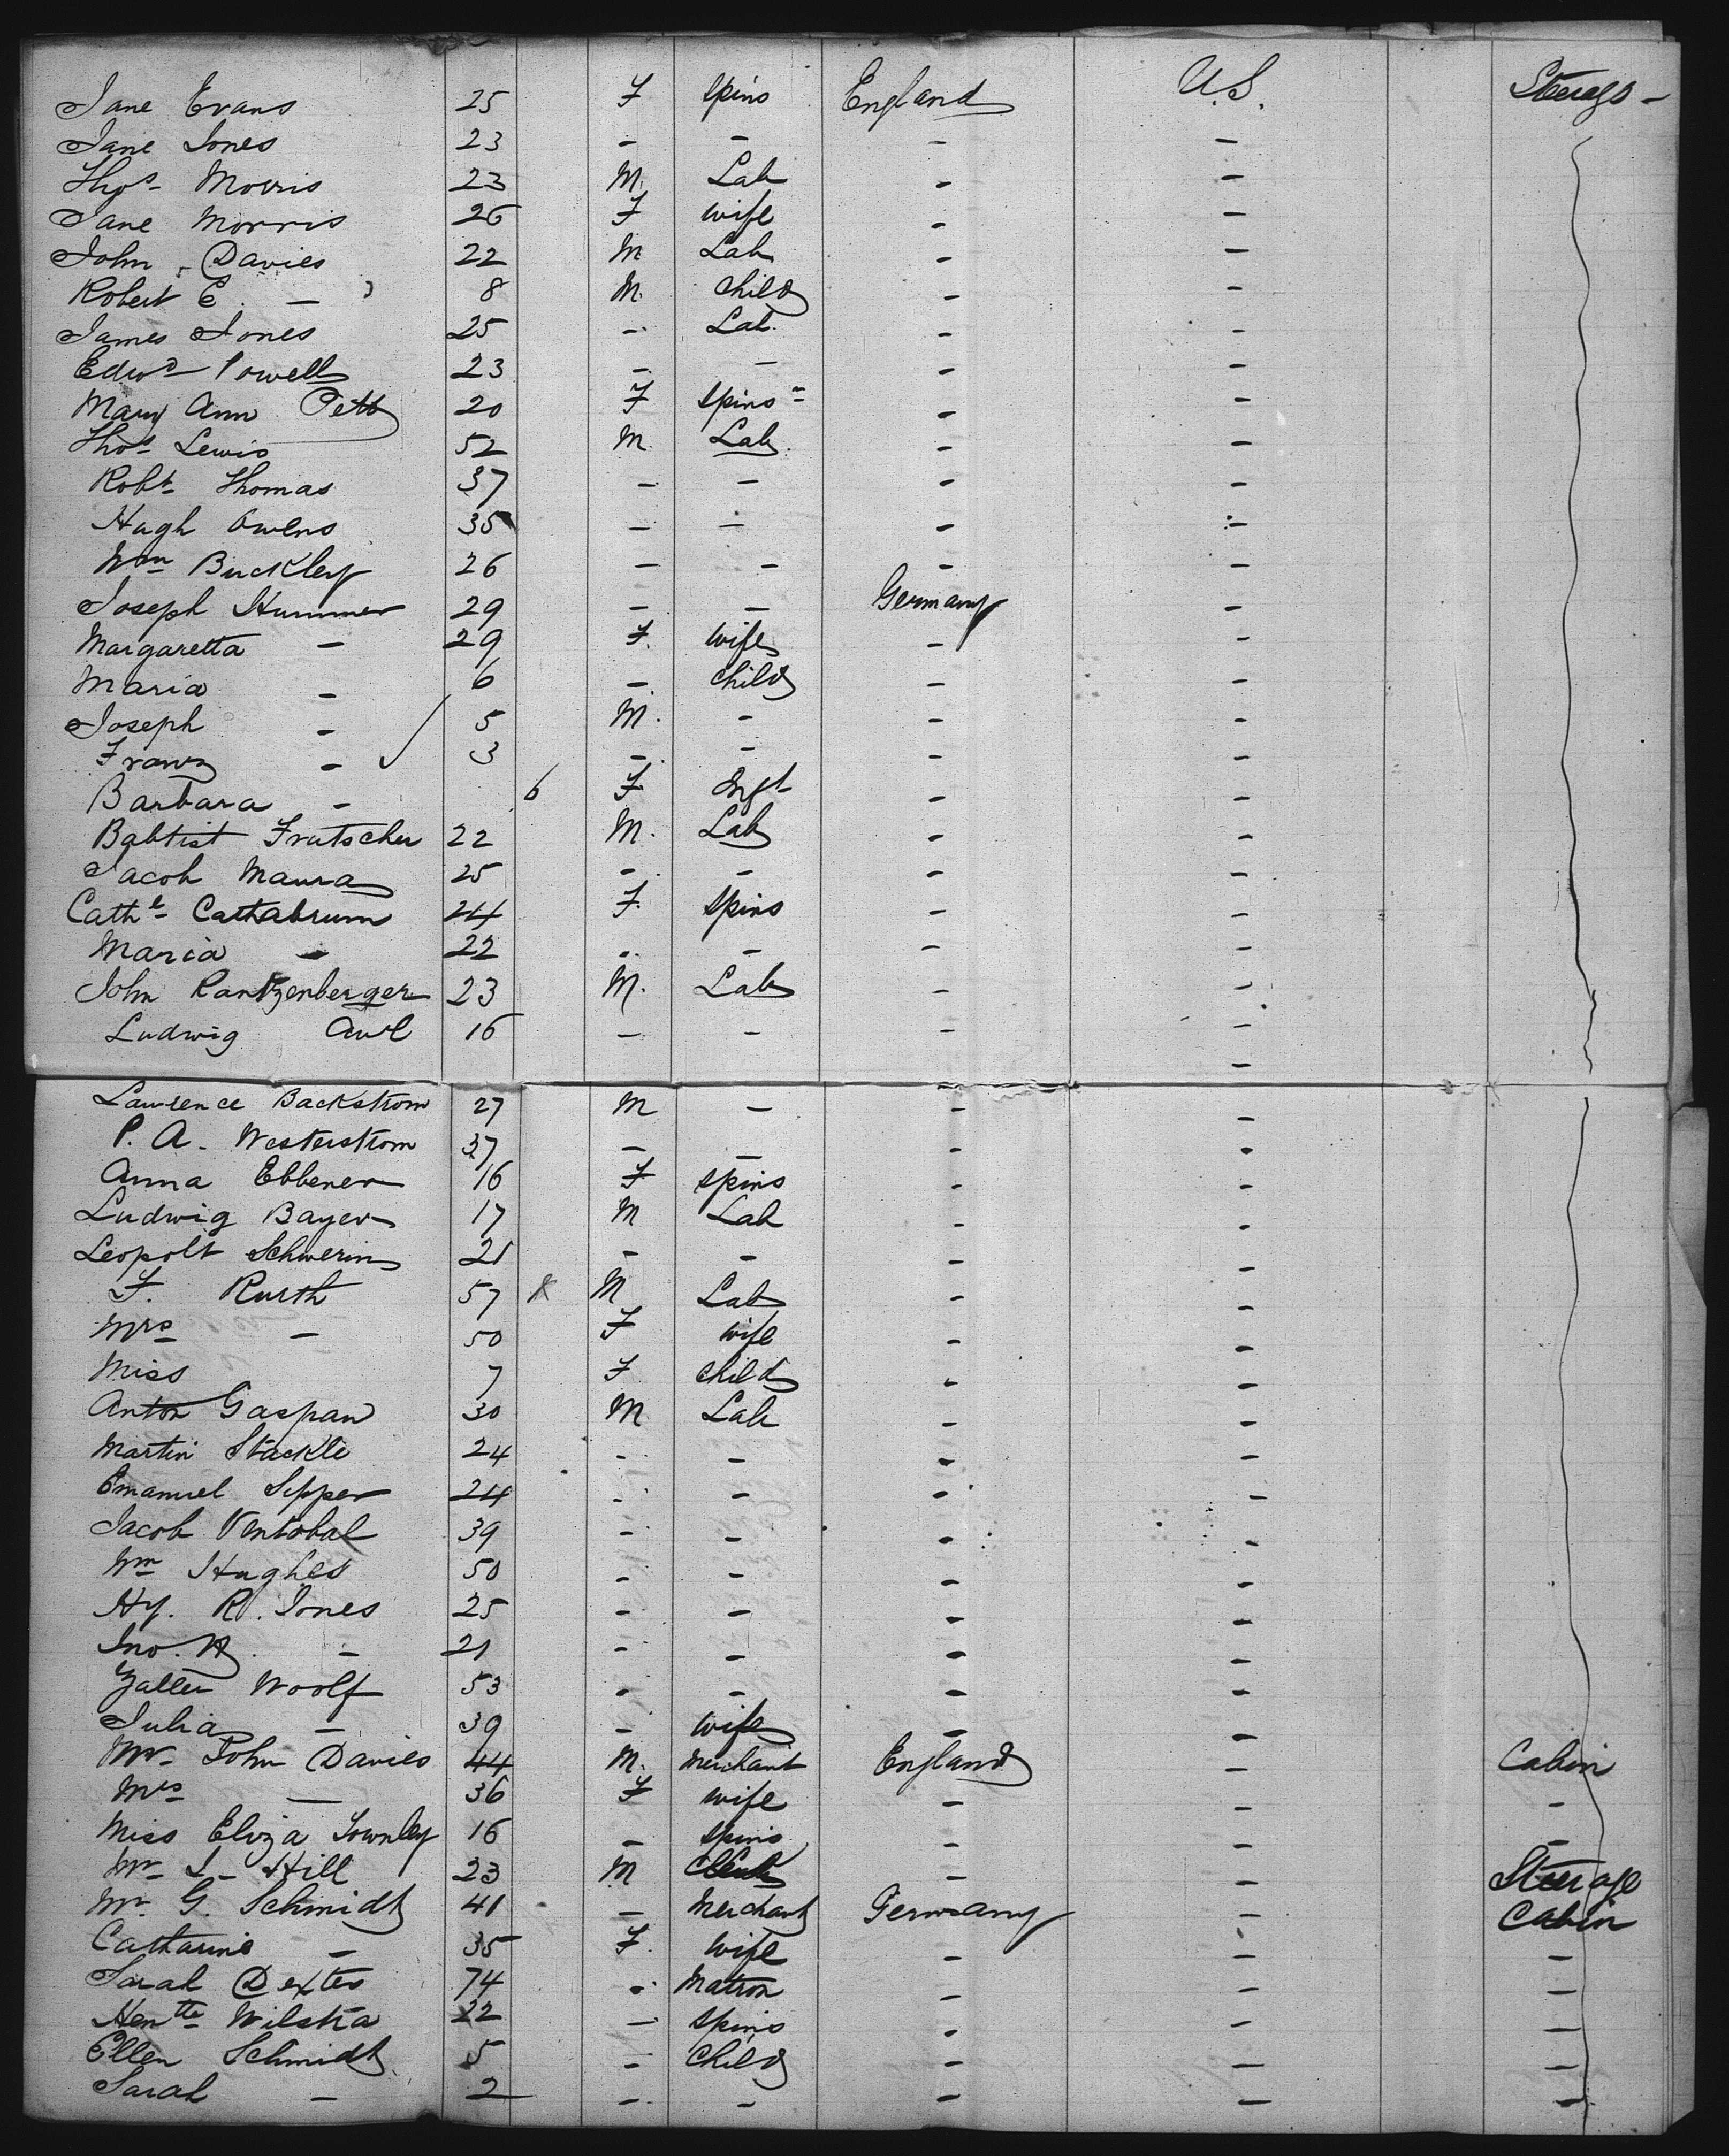 Jane Evans 25 F Spins England U.S. Steerage -
Jane Jones 23 - - - -
Thos Morris 23 M. Lab - -
Jane Morris 26 F wife - -
John Davies 22 M Lab - -
Robert E. - 8 M. Child - -
James Jones 25 - Lab. - -
Edwd Powell 23 - - - -
Mary Ann Pett 20 F Spinsr - -
Thos Lewis 52 M. Lab. - -
Robt Thomas 37 - - - -
Hugh Owens 35 - - - -
Wm Buckley 26 - - - -
Joseph Hummer 29 - - Germany -
Margaretta - 29 F. wife - -
Maria - 6 - Child - -
Joseph - 5 M. - - -
Franz - 3 - - - -
Barbara - 6 F Inft - -
Babtist Frutscher 22 M. Lab - -
Jacob Maura 25 - - - -
Cathe Cathabrum 24 F. Spins - -
Maria - 22 - - - -
John Rantzenberger 23 M. Lab - -
Ludwig 16 - - - -
Lawrence Backstrom 27 M - - -
P. A. Westerstrom 37 - - - -
Anna Ebbener 16 F Spins - -
Ludwig Bayer 17 M Lab - -
Leopolt Schwerin 21 - - - -
F. Rurth 57 M Lab - -
Mrs - 50 F wife - -
Miss 7 F Child - -
Anton Gaspan 30 M Lab - -
Martin Stackle 24 - - - -
Emanuel Sepper 24 - - - -
Jacob Ventobal 39 - - - -
Wm Hughes 50 - - - -
Hy. R. Jones 25 - - - -
Jno. - 21 - - - -
Woolf 53 - - - -
Julia - 39 - wife - -
Mr John Davies 44 M. Merchant England - Cabin
Mrs - 36 F wife - - -
Miss Eliza Townley 16 - Spins - - -
Mr Hill 23 M Clerk - - Steerage
Mr. G. Schmidt 41 - Merchant Germany - Cabin
Catharine - 35 F. wife - - -
Sarah Dexter 74 - Matron - - -
Hentte Wilska 22 - Spins - - -
Ellen Schmidt 5 - Child - - -
Sarah - 2 - - - - -